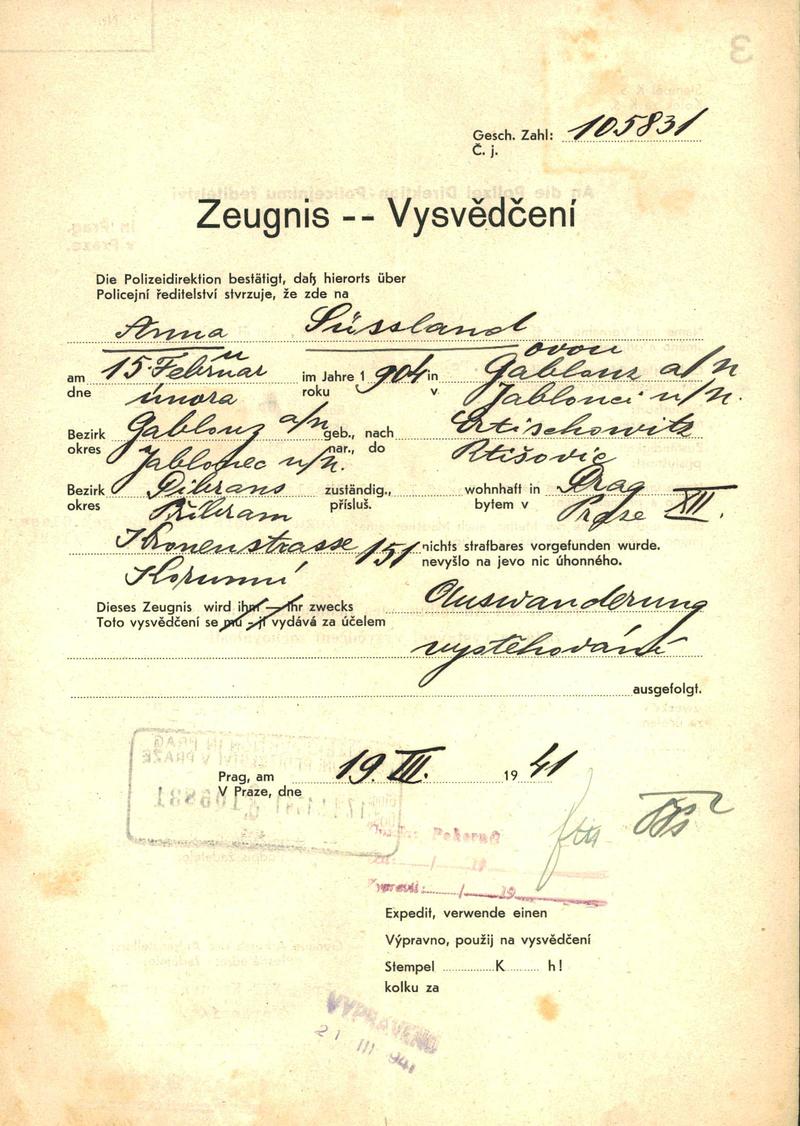 Gesch. Zahl: 105831
Č. j.
Zeugnis -- Vysvědčení
Die Polizeidirektion bestätigt, daß hierorts über
Policejní ředitelství stvrzuje, že zde na
Anna Süssland
ovou
am 15. Februar im Jahre 1904 in Gablonz a/N
dne února roku v Jablonci n/N.
Bezirk Gablonz a/N geb., nach Ertischowitz
okres Jablonec n/N. nar., do Rtišovic
Bezirk Pibrans zuständig., wohnhaft in Prag
okres Příbram přísluš. bytem v Praze XII.
Kronenstrasse 151 nichts strafbares vorgefunden wurde.
Korunní nevyšlo na jevo nic úhonného.
Dieses Zeugnis wird ihm – ihr zwecks Auswanderung
Toto vysvědčení se mu - jí vydává za účelem
vystěhování
ausgefolgt.
Prag, am 19. III. 1941
V Praze, dne
Pokorný
19
19
Expedit, verwende einen
Výpravno, použij na vysvědčení
Stempel K h!
kolku za
VYPRAVENO
21 III 941